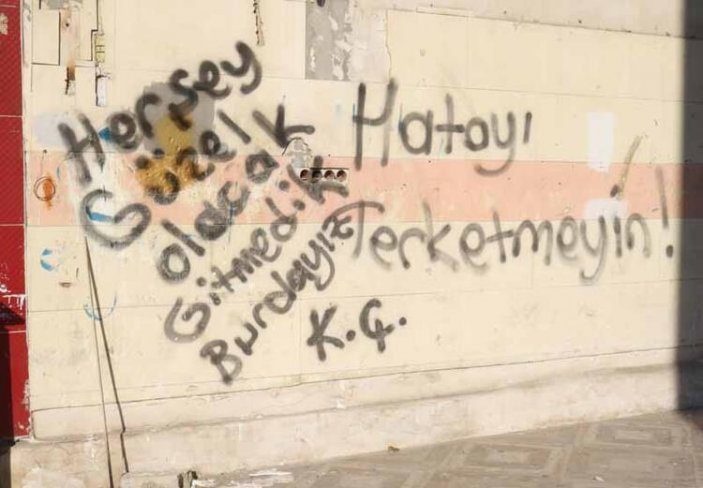 Herşey
Güzel
olacak
Gitmedik
Burdayız
K.Ç.
Hatayı
Terketmeyin!